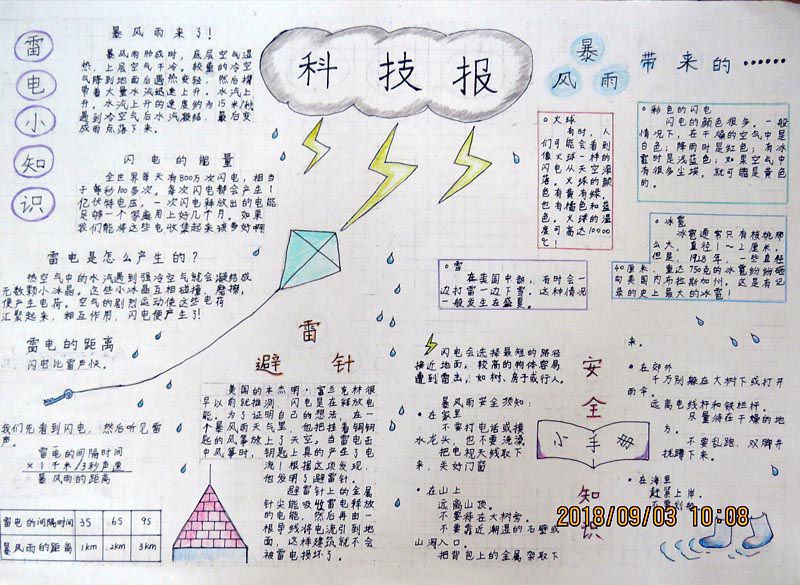 科技报
雷电小知识
暴风雨来了!
暴风雨形成时，底层空气温
热，上层空气干冷，较重的冷空
气降到地面后遇热变轻，然后携
带着大量水汽迅速上升。水汽上
升。水汽上升的速度约为15米/秒
遇到冷空气后水汽凝结，最后变
成雨点落下来。
闪电的能量
全世界每天有800万次闪电，相当
于每秒100多次。每次闪电都会产生1
亿伏特电压，一次闪电释放出的电能
足够一个家庭用上好几个月。如果
我们能将这些电收集起来该多好啊
雷电是怎么产生的？
热空气中的水汽遇到强冷空气就会凝结成
无数颗小冰晶。这些小冰晶互相碰撞、磨擦，
便产生电荷。空气的剧烈运动使这些电荷
汇聚起来，相互作用，闪电便产生了!
雷电的距离
闪电比雷声快。
我们先看到闪电，然后听见雷
声。
雷电的间隔时间
×1千米/3秒声速
暴风雨的距离
雷电的间隔时间 3S 6S 9S
暴风雨的距离 1km 2km 3km
避雷针
美国的本杰明·富兰克林很
早以前就推测 闪电是在释放电
能。为了证明自己的想法，在一
个暴风雨天气里，他把拴着铜钥
匙的风筝放上了天空。当雷电击
中风筝时，钥匙上真的产生了电
流！根据这项发现，
他发明了避雷针。
避雷针上的金属
针尖能吸收雷电释放
的电能，然后再由一
根导线将电流引到地
面，这样建筑就不会
被雷电损坏了。
暴风雨带来的……
○火球
有时，人
们可能会看到
像火球一样的
闪电从天空滚
落。火球的颜
色有黄有绿，
也有橘色和蓝
色。火球的温
度可高达10000
℃!
○彩色的闪电
闪电的颜色很多。一般
情况下，在干燥的空气中是
白色；降雨时是红色；有冰
雹时是浅蓝色；如果空气中
有很多尘埃，就可能是黄色
的。
○冰雹
冰雹通常只有核桃那
么大，直径1～2厘米。
但是，1928年，一些直径
40厘米，重达750克的冰雹纷纷砸
向美国内布拉斯加州。这是有记
录的史上最大的冰雹!
○雪
在美国中部，有时会一
边打雷一边下雪。这种情况
一般发生在盛夏。
安全小手册知识
闪电会选择最短的路径
接近地面。较高的物体容易
遭到雷击，如树、房子或行人。
暴风雨安全须知：
○在家里
不要打电话或摸
水龙头，也不要洗澡
把电视天线取下
来，关好门窗
○在山上
远离山顶。
不要待在大树旁。
不要靠近潮湿的石壁或
山洞入口。
把背包上的金属架取下
来。
○在郊外
千万别躲在大树下或打开
雨伞。
远离电线杆和铁栏杆。
尽量待在干燥的地
方。
不要乱跑，双脚并
拢蹲下来。
○在海里
赶紧上岸。
2018/09/03 10:08